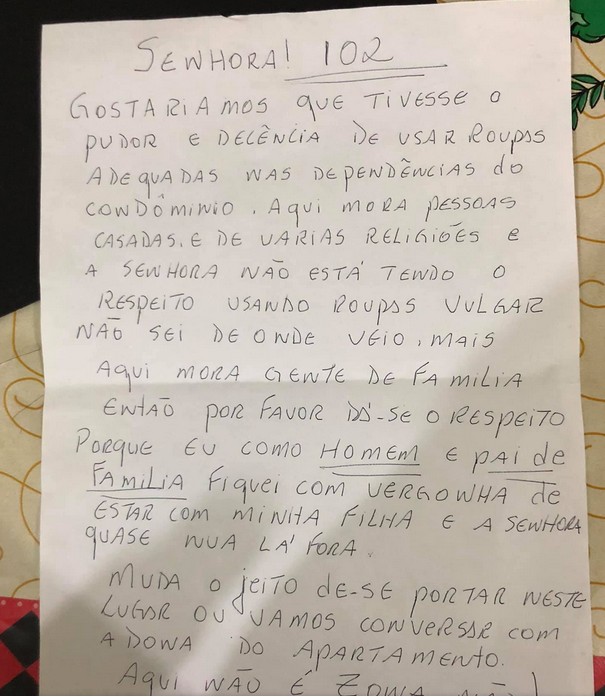 SENHORA! 102
GOSTARIAMOS QUE TIVESSE O
PUDOR E DECÊNCIA DE USAR ROUPAS
ADEQUADAS NAS DEPENDÊNCIAS do
CONDÔMINIO. AQUI MORA PESSOAS
CASADAS, E DE VARIAS RELIGIÕES e
A SENHORA NÃO ESTÁ TENDO O
RESPEITO USANDO ROUPAS VULGAR
NÃO SEI DE ONDE VEIO, MAIS
AQUI MORA GENTE DE FAMILIA
ENTÃO POR FAVOR DÁ-SE O RESPEITO
PORQUE EU COMO HOMEM E PAI de
FAMILIA FIQUEI COM VERGONHA de
ESTAR COM MINHA FILHA E A SENHORA
QUASE NUA LÁ FORA.
MUDA O JEITO DE-SE PORTAR NESTE
LUGAR OU VAMOS CONVERSAR COM
A DONA DO APARTAMENTO.
AQUI NÃO É ZONA NÃO!